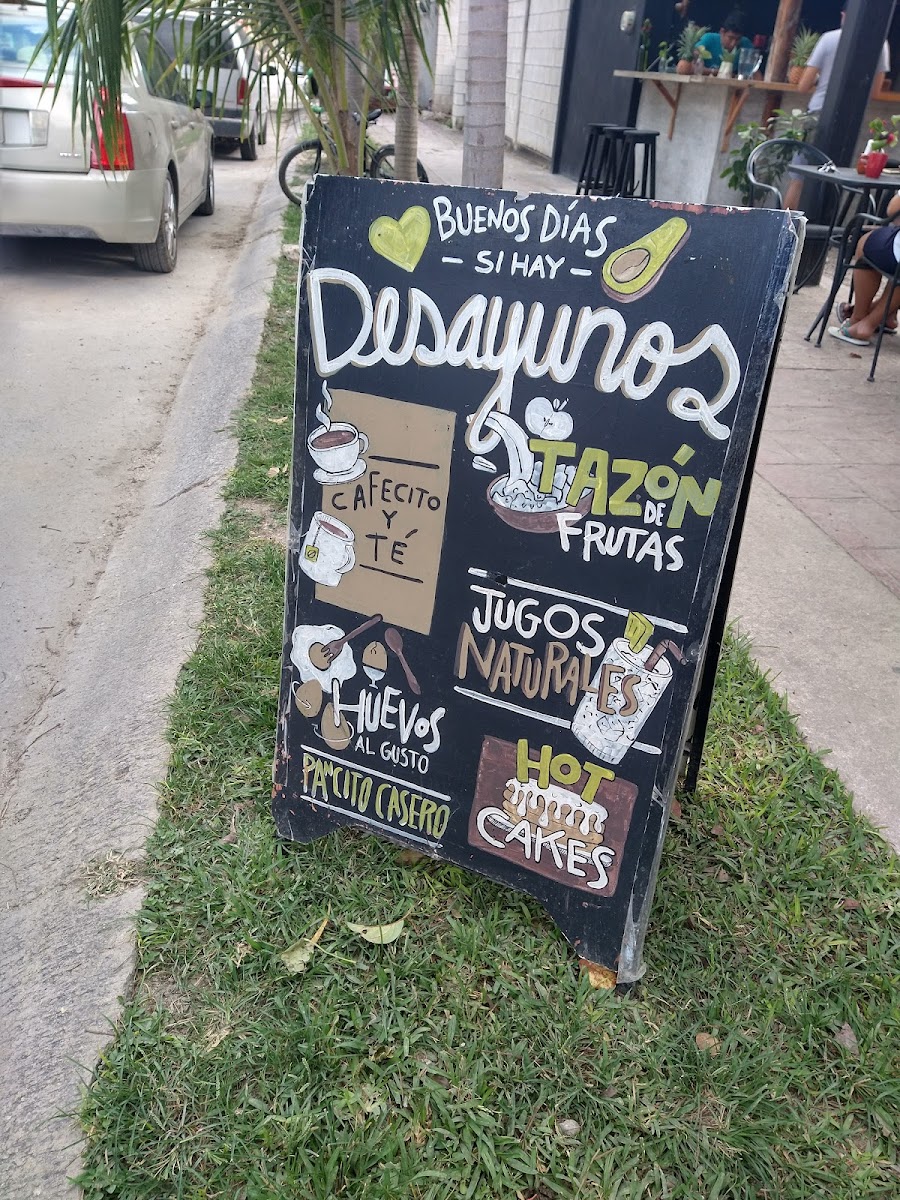 BUENOS DÍAS
- SI HAY -
Desayunos
CAFECITO
Y
TÉ
TAZÓN
DE
FRUTAS
JUGOS
NATURALES
HUEVOS
AL GUSTO
PANCITO CASERO
HOT
CAKES